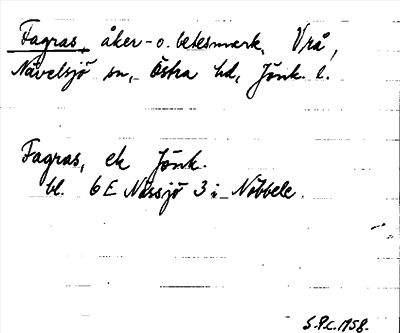 Fagras, åker- o. betesmark, Vrå,
Nävelsjö sn, Östra hd, Jönk. l.
Fagras, ek Jönk.
bl. 6E Nässjö 3 i Nöbbele.
S.P.C. 1958.